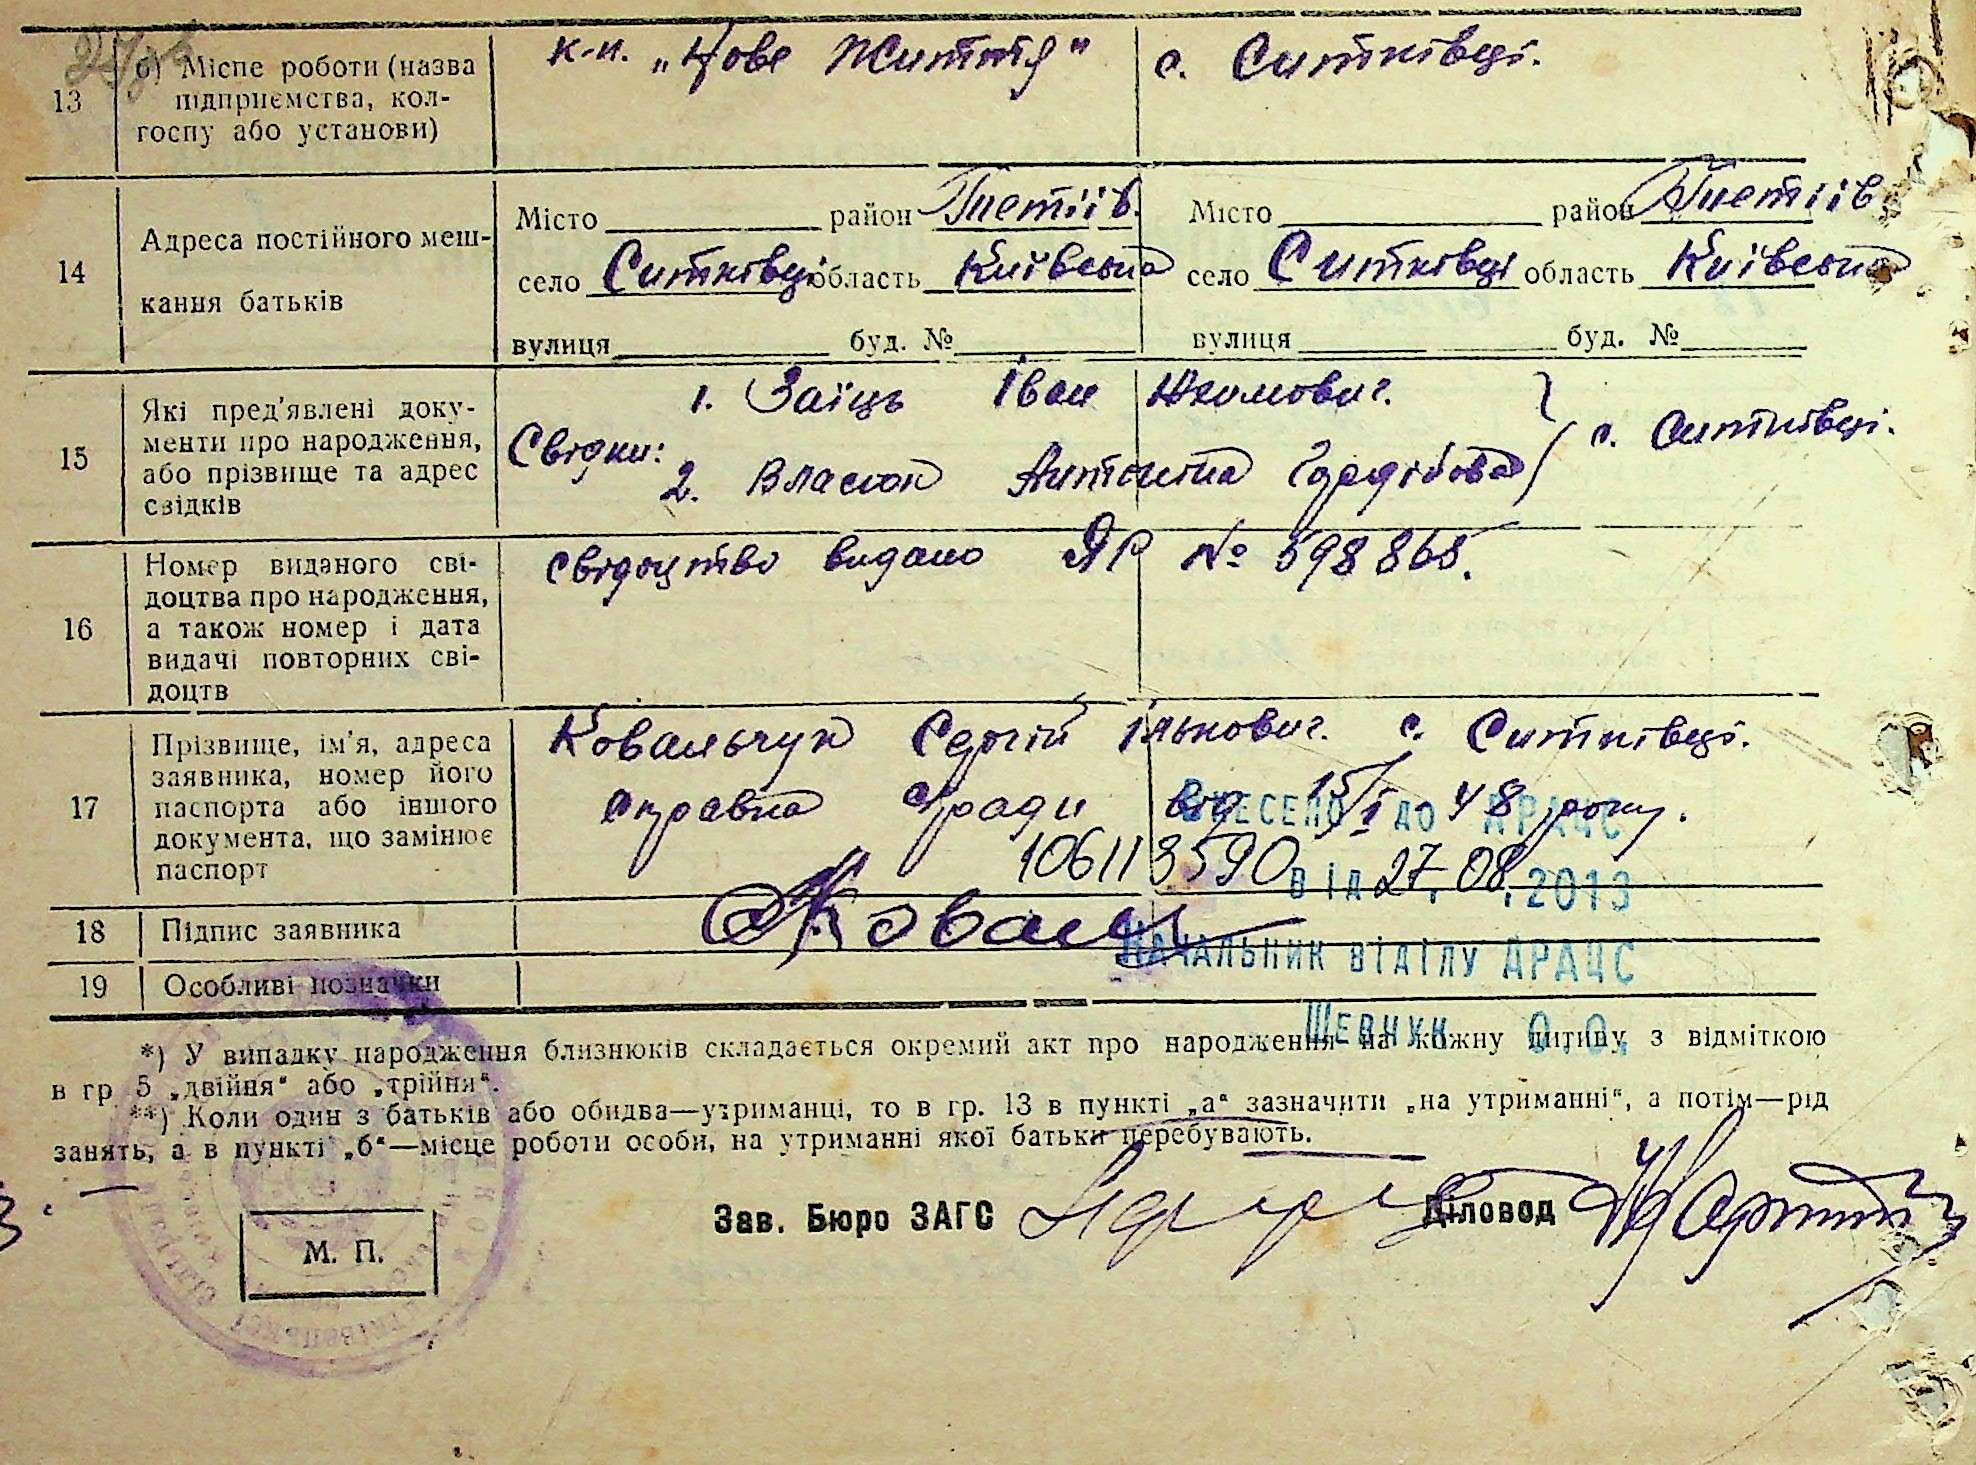 13 б) Місце роботи (назва підприємства, колгоспу або установи)
„Нове Життя" с. Ситківці.
14 Адреса постійного мешкання батьків
Місто район Тетіїв.
село Ситківці область Київська
вулиця буд. №
Місто район Тетіїв
село Ситківці область Київська
вулиця буд. №
15 Які пред'явлені документи про народження, або прізвище та адрес свідків
Свідки: 1. Заїць Іван Якимович.
2. Власюк Антоніна с. Ситківці.
16 Номер виданого свідоцтва про народження, а також номер і дата видачі повторних свідоцтв
Свідоцтво видано ЯР № 598868.
17 Прізвище, ім'я, адреса заявника, номер його паспорта або іншого документа, що замінює паспорт
Ковальчук Сергій Ількович. с. Ситківці.
Справка с/ради від 15/I 48 року.
Внесено до ДРАЦС
106113590 від 27.08.2013
18 Підпис заявника
Начальник відділу ДРАЦС
19 Особливі позначки
Шевчук О.О.
*) У випадку народження близнюків складається окремий акт про народження на кожну дитину з відміткою
в гр 5 „двійня" або „трійня".
**) Коли один з батьків або обидва—утриманці, то в гр. 13 в пункті „а" зазначити „на утриманні", а потім—рід
занять, а в пункті „б"—місце роботи особи, на утриманні якої батьки перебувають.
Зав. Бюро ЗАГС Діловод
М. П.